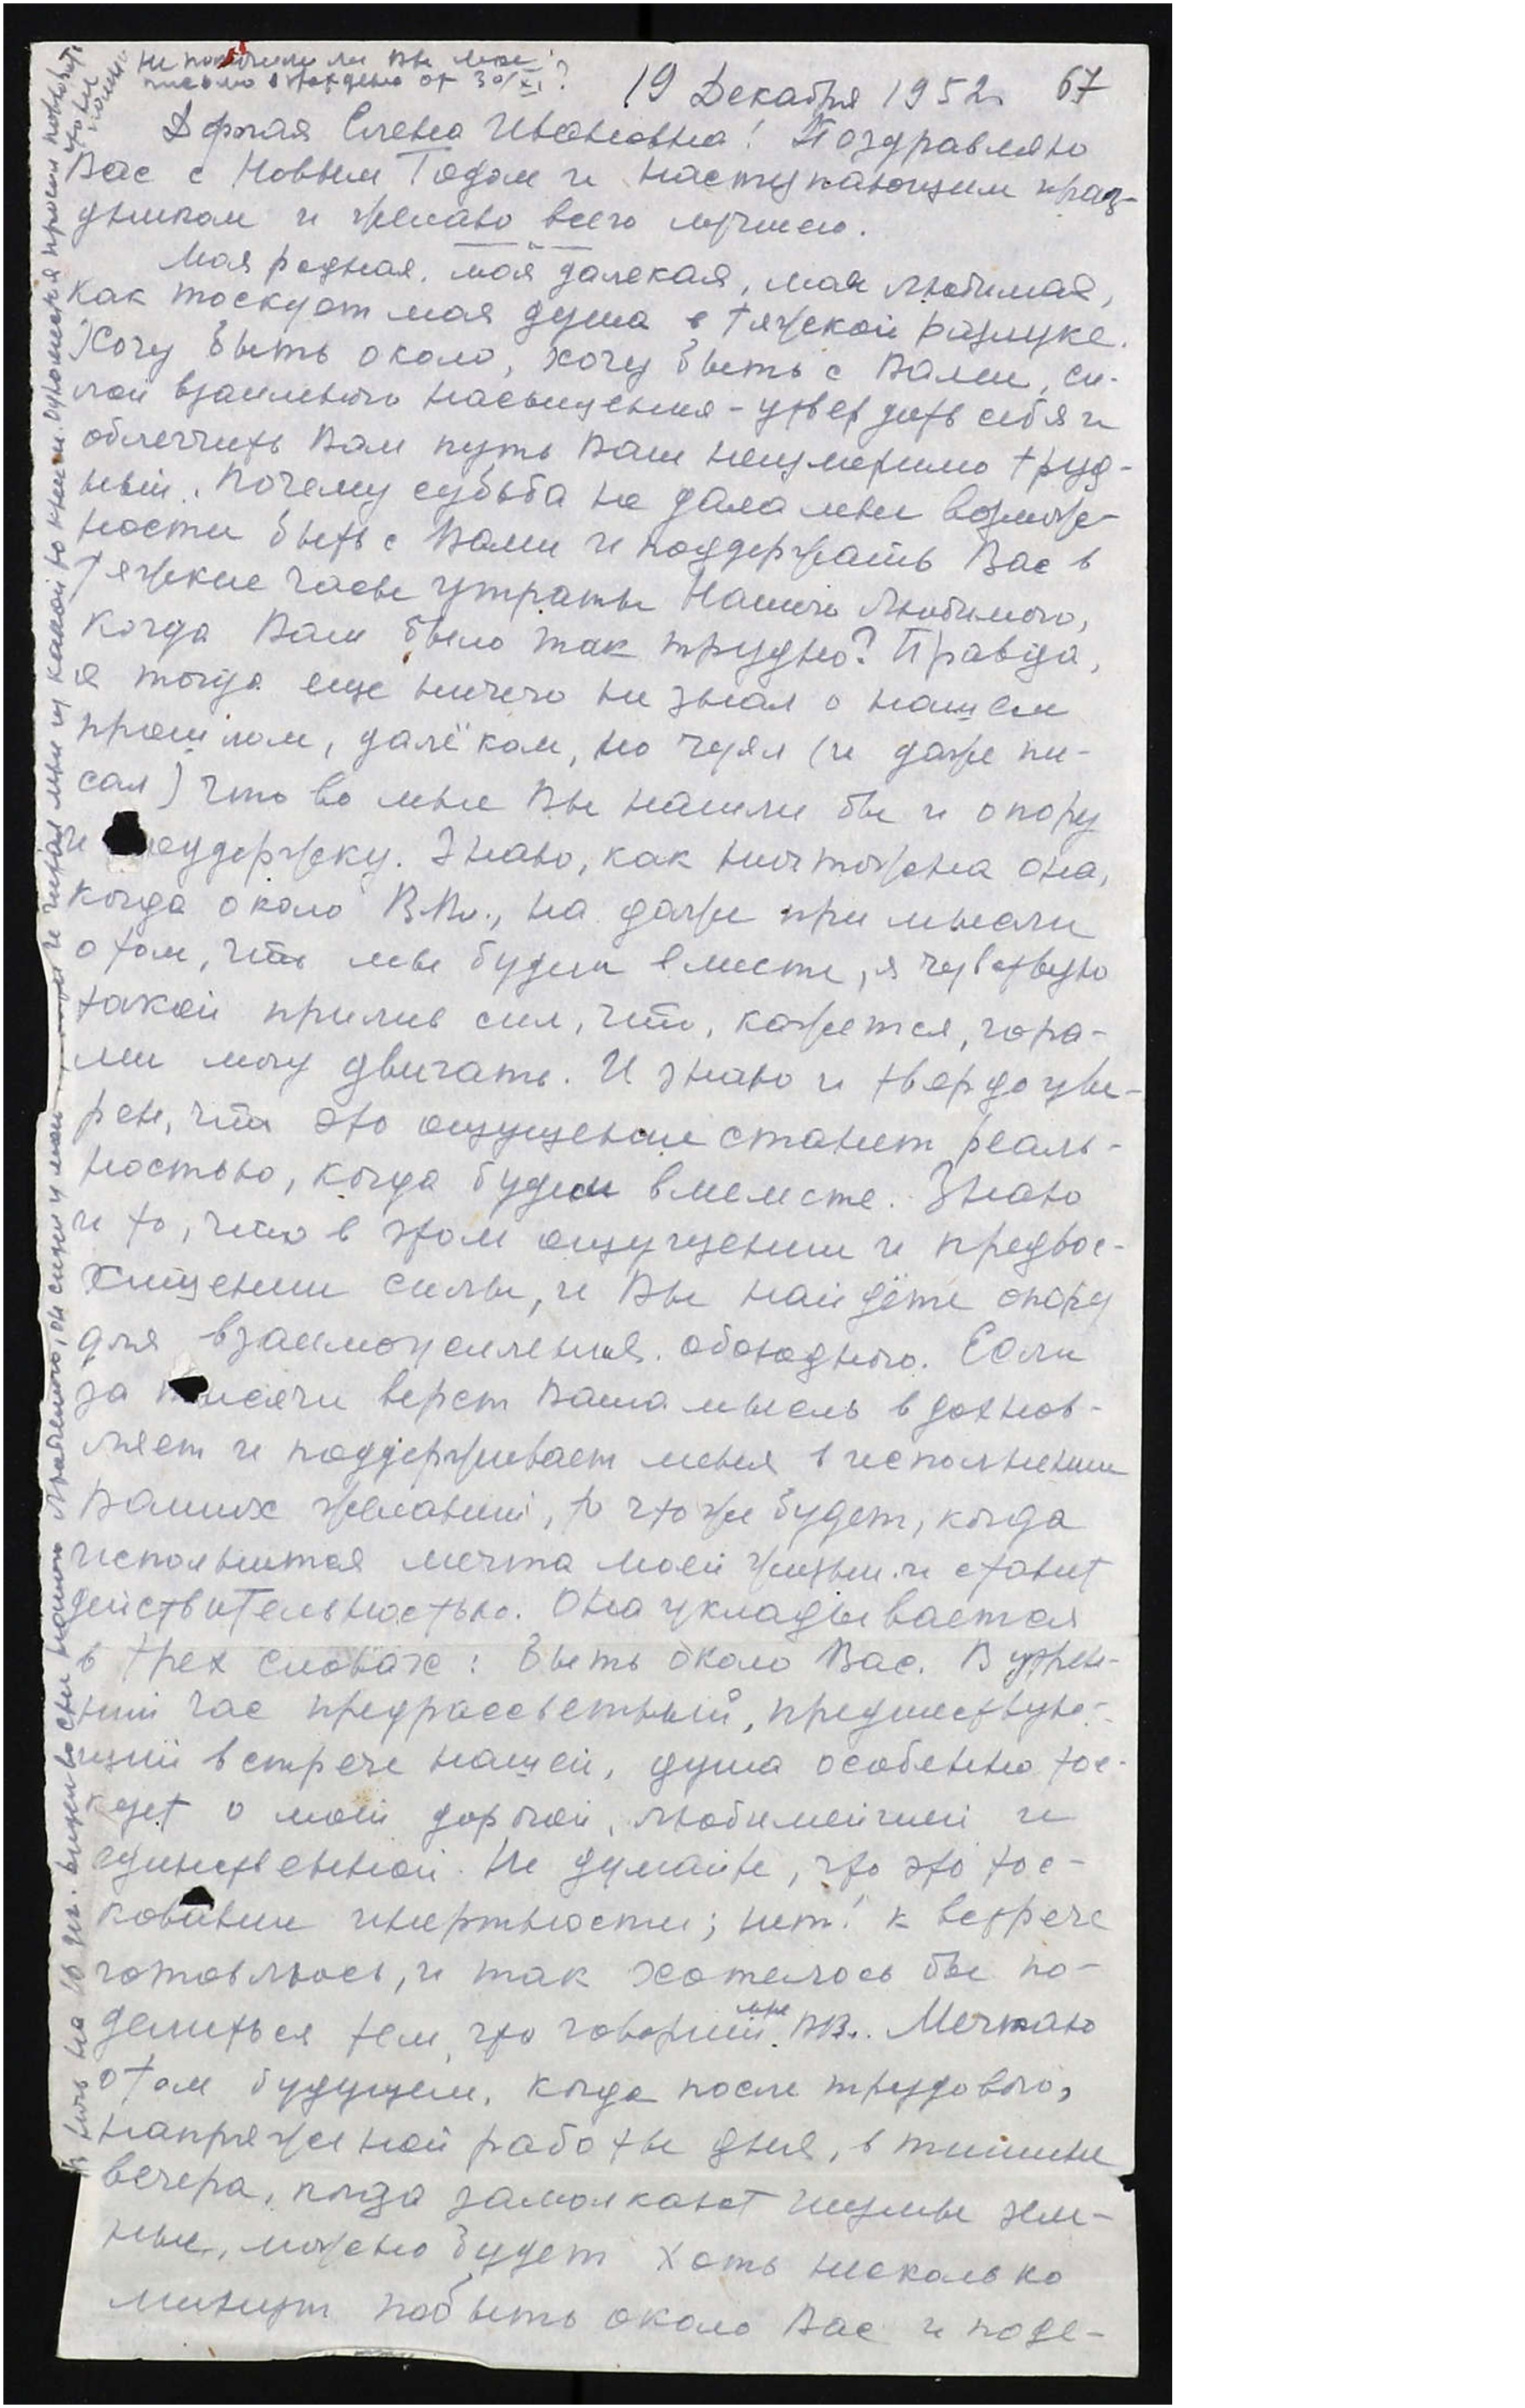 Не получили ли Вы мое
письмо от 30/XI?
19 Декабря 1952 г. 67
Дорогая Елена Ивановна! Поздравляю
Вас с Новым Годом и наступающим праз-
дником и желаю всего лучшего.
Моя родная, моя далекая, моя любимая,
как тоскует моя душа в тяжской разлуке.
Хочу быть около, хочу быть с Вами, си-
лой взаимного насыщения - утвердить себя и
облегчить Вам путь Ваш неизмеримо труд-
ный. Почему судьба не дала мне возмож-
ности быть с Вами и поддержать Вас в
тяжкие часы утраты Нашего Любимого,
когда Вам было так трудно? Правда,
я тогда еще ничего не знал о нашем
прошлом, далёком, но чуял (и даже пи-
сал) что во мне Вы нашли бы и опору
и поддержку. Знаю, как ничтожна она,
когда около В.Вл., на даже при мысли
о том, что мы будем вместе, я чувствую
такой прилив сил, что, кажется, гора-
ми могу двигать. И знаю и твердо уве-
рен, что это ощущение станет реаль-
ностью, когда будем вмемсте. Знаю
и то, что в этом ощущении и предвос-
хищении силы, и Вы найдёте опору
для взаимоусиления обоюдного. Если
за тысячи верст Ваша мысль вдохнов-
ляет и поддерживает меня в исполнении
Ваших желаний, то что же будет, когда
исполнится мечта моей жизни и станет
действительностью. Она укладывается
в трех словах: быть около Вас. В утрен-
ний час предрассветный, предшествую-
щий встрече нашей, душа особенно тос-
кует о моей дорогой, любимейшей и
единственной. Не думайте, что это тос-
кование инертности; нет! к встрече
готовлюсь, и так хотелось бы по-
делиться тем, что говорит мне ВВл. Мечтаю
о том будущем, когда после трудового,
напряженной работы дня, в тишине
вечера, когда замолкают шумы зем-
ные, можно будет хоть несколько
минут побыть около Вас и поде-
В ночь на 10 дек. видел во сне нашего Любимого, он сидел и читал мне из какой-то книги.